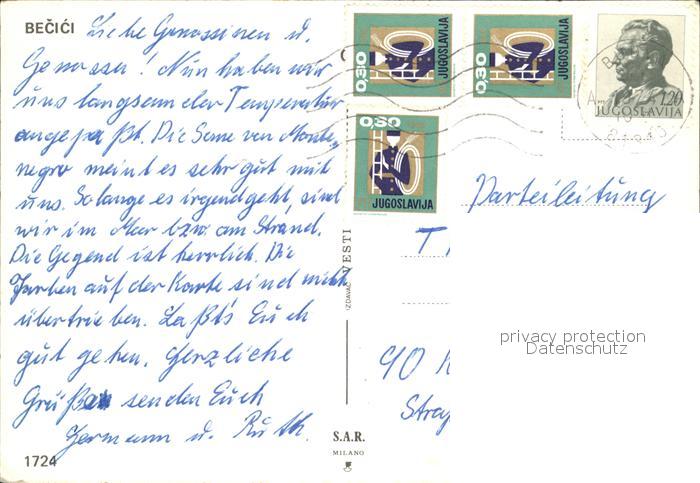 BEČIĆI
Liebe Genossinen u.
Genossen! Nun haben wir
uns langsam der Temperatur
angepaßt. Die Sonne von Monte-
negro meint es sehr gut mit
uns. Solange es irgend geht, sind
wir im Meer bzw. am Strand.
Die Gegend ist herrlich. Die
Farben auf der Karte sind nicht
übertrieben. Laßt's Euch
gut gehen. Herzliche
Grüße senden Euch
Hermann u. Ruth.
1724
IZDAVAČ VESTI
S.A.R.
MILANO
0,30 JUGOSLAVIJA
0,30 JUGOSLAVIJA
1.20
JUGOSLAVIJA
0,30
JUGOSLAVIJA
Parteileitung
T
90
Stra
privacy protection
Datenschutz